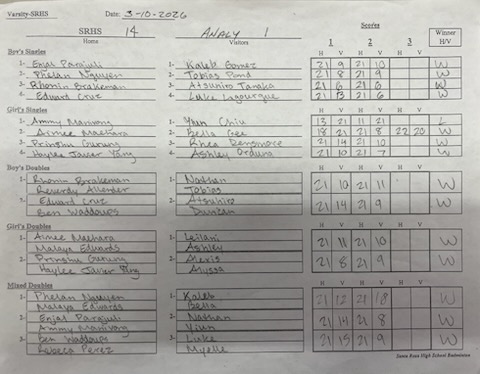 Varsity-SRHS Date: 3-10-2026
SRHS 14 ANALY 1 Scores Winner
Home Visitors 1 2 3 H/V
H V H V H V
Boy's Singles
1- Enjal Parajuli 1- Kaleb Gomez 21 9 21 10 W
2- Phelan Nguyen 2- Tobias Pond 21 8 21 9 W
3- Rhonin Brakeman 3- Atsuhiro Tanaka 21 6 21 6 W
4- Eduard Cruz 4- Luke 21 13 21 6 W
Girl's Singles
1- Ammy Manivong 1- Yiun Chiu 13 21 11 21 L
2- Aimee Maehara 2- Bella Gee 18 21 21 8 22 20 W
3- Prinshu Gurung 3- Rhea Densmore 21 14 21 10 W
4- Haylee Javier Yang 4- Ashley Orduna 21 10 21 7 W
Boy's Doubles H V H V H V
1- Rhonin Brakeman 1- Nathan 21 10 21 11 W
Reverdy Allender Tobias
2- Eduard Cruz 2- Atsuhiro 21 14 21 9 W
Ben Waddoups Duncan
Girl's Doubles H V H V H V
1- Aimee Maehara 1- Leilani 21 11 21 10 W
Malaya Edwards Ashley
2- Prinshu Gurung 2- Alexis 21 8 21 9 W
Haylee Javier Yang Alyssa
Mixed Doubles H V H V H V
1- Phelan Nguyen 1- Kaleb 21 12 21 18 W
Malaya Edwards Bella
2- Enjal Parajuli 2- Nathan 21 14 21 8 W
Ammy Manivong Yiun
3- Ben Waddoups 3- Luke 21 15 21 9 W
Rebeca Perez
Santa Rosa High School Badminton